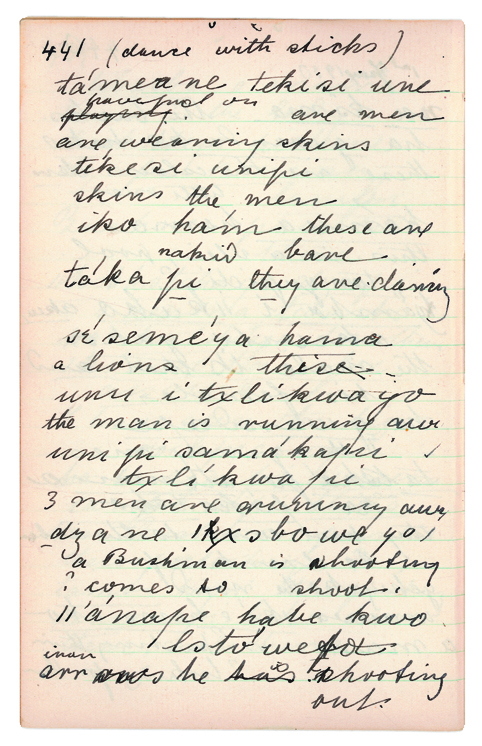 441 (dance with sticks)
támerane tekisi une
have put on
playing? are men
are wearing skins
tekesi unipi
skins the men
iko hám these are
nakid bare
táka pi they are dancing
sésemeýa hama
a lions these
unu i txlikwa yo
the man is running awr
unipi samákapi ✓
txlíkwa pi
3 men are running awy
dzane ǀkxsbo we yo/
a Bushman is shooting
? comes to shoot.
ǁánape habe kwo
lstó we
iron
arrows he has shooting
out.